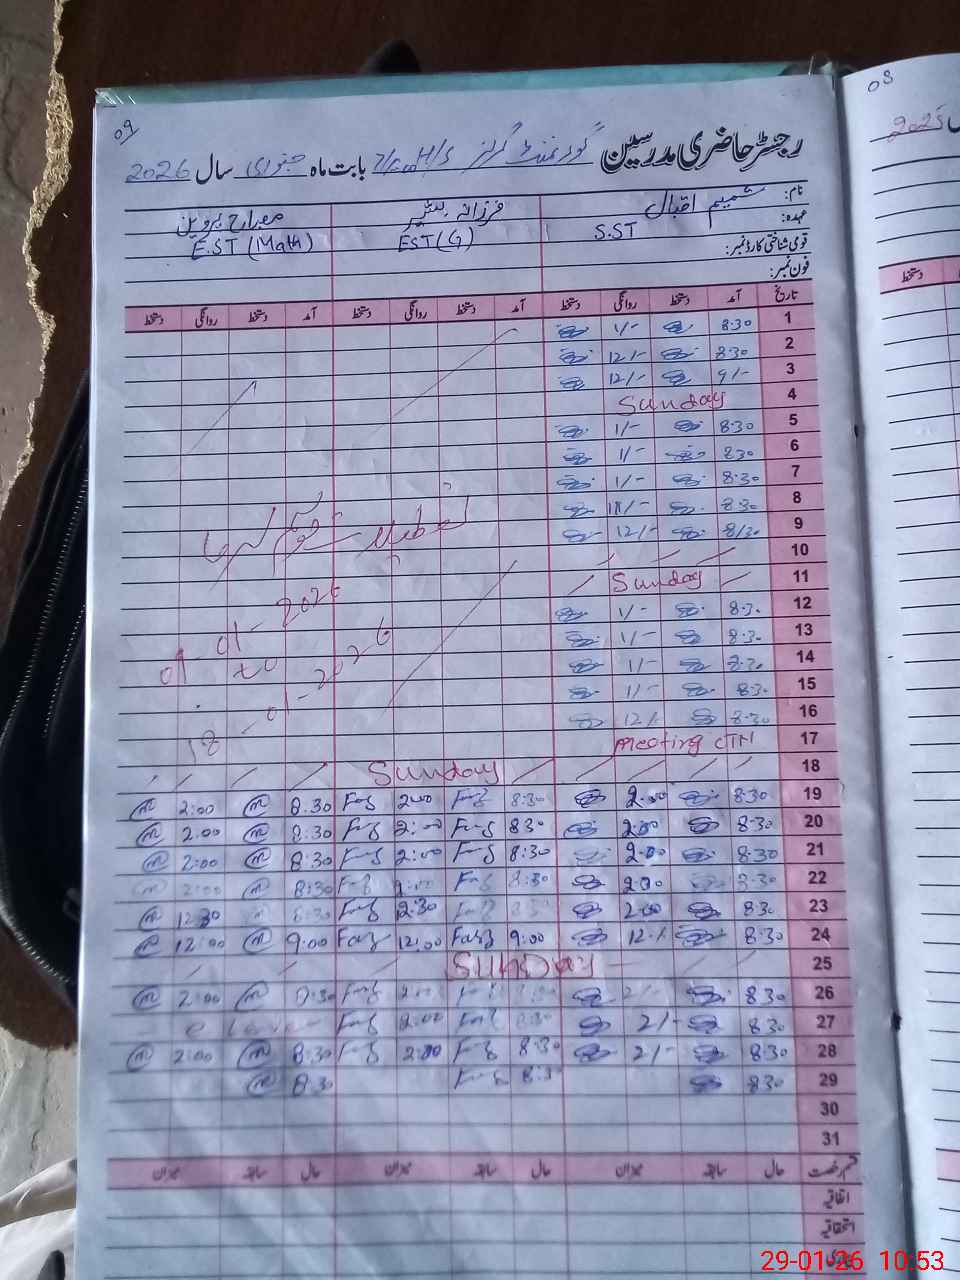 09
رجسٹر حاضری مدرسین گورنمنٹ گرلز H/S بابت ماہ جنوری سال 2026
نام: شمیم اقبال فرزانہ بشیر معراج پروین
عہدہ: S.ST EST(G) E.ST (Math)
قومی شناختی کارڈ نمبر:
فون نمبر:
تاریخ آمد دستخط روانگی دستخط آمد دستخط روانگی دستخط آمد دستخط روانگی دستخط
1 8:30 1/-
2 8:30 12/-
3 9/- 12/-
4 Sunday
5 8:30 1/-
6 8:30 1/-
7 8:30 1/-
8 8:30
9 8/30 12/-
10
11 Sunday
12 8:30 1/-
13 8:30 1/-
14 8:30 1/-
15 8:30 1/-
16 8:30 12/-
17 Meeting CTM
تعطیلات موسم گرما
01-01-2026
to
18-01-2026
18 Sunday
19 8:30 2:00 8:30 Faz 2:00 Faz 8:30 2:00
20 8:30 2:00 830 Faz 2:00 Faz 8:30 2:00
21 8:30 2:00 8:30 Faz 2:00 Faz 8:30 2:00
22 8:30 2:00 8:30 Faz 2:00 Faz 8:30 2:00
23 8:30 2:00 8:30 Faz 12:30 Faz 8:30 12:30
24 8:30 12/- 9:00 Farz 12:00 Faz 9:00 12:00
25 SUNDAY
26 830 2/- 8:30 Faz 2:00 Faz 8:30 2:00
27 830 2/- 8:30 Faz 2:00 Faz Leave
28 830 2/- 8:30 Faz 2:00 Faz 8:30 2:00
29 830 8:30 Faz 8:30
30
31
قسم رخصت حال سابقہ میزان حال سابقہ میزان حال سابقہ میزان
اتفاقیہ
استحقاقیہ
08
2025
دستخط
29-01-26 10:53